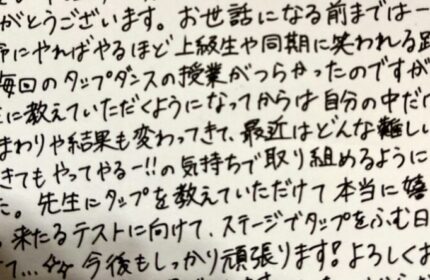 がとうございます。お世話になる前までは一
命にやればやるほど上級生や同期に笑われる
毎回のタップダンスの授業がつらかったのですが
に教えていただくようになってからは自分の中だけ
まわりや結果も変わってきて、最近はどんな難しい
きてもやってやるー!!の気持ちで取り組めるように
た。先生にタップを教えていただけて本当に嬉
来たるテストに向けて、ステージでタップをふむ日
て...☆☆ 今後もしっかり頑張ります!よろしくお